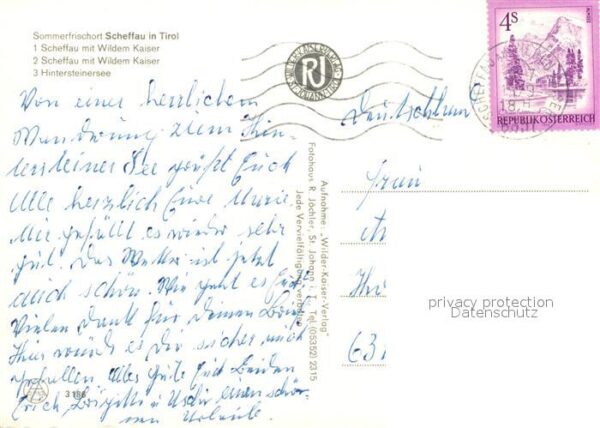 Sommerfrischort Scheffau in Tirol
1 Scheffau mit Wildem Kaiser
2 Scheffau mit Wildem Kaiser
3 Hintersteinersee
Von einer herrlichen
Wanderung zum Hin-
tersteiner See grüßt Euch
Alle herzlich Eure
Mir gefällt es wieder sehr
gut. Das Wetter ist jetzt
auch schön. Wie geht es Euch?
Vielen Dank für Deinen Brief
Hier würde es Dir sicher auch
gefallen. Alles Gute Euch Beiden
Erich, Brigitte u. einen schö-
nen Urlaub.
3186
Aufnahme: „Wilder-Kaiser-Verlag"
Fotohaus R. Jöchler, St. Johann i. T., Tel. (05352) 2315
Jede Vervielfältigung verboten
RJ
4S
REPUBLIK ÖSTERREICH
Deutschland
Frau
63
privacy protection
Datenschutz